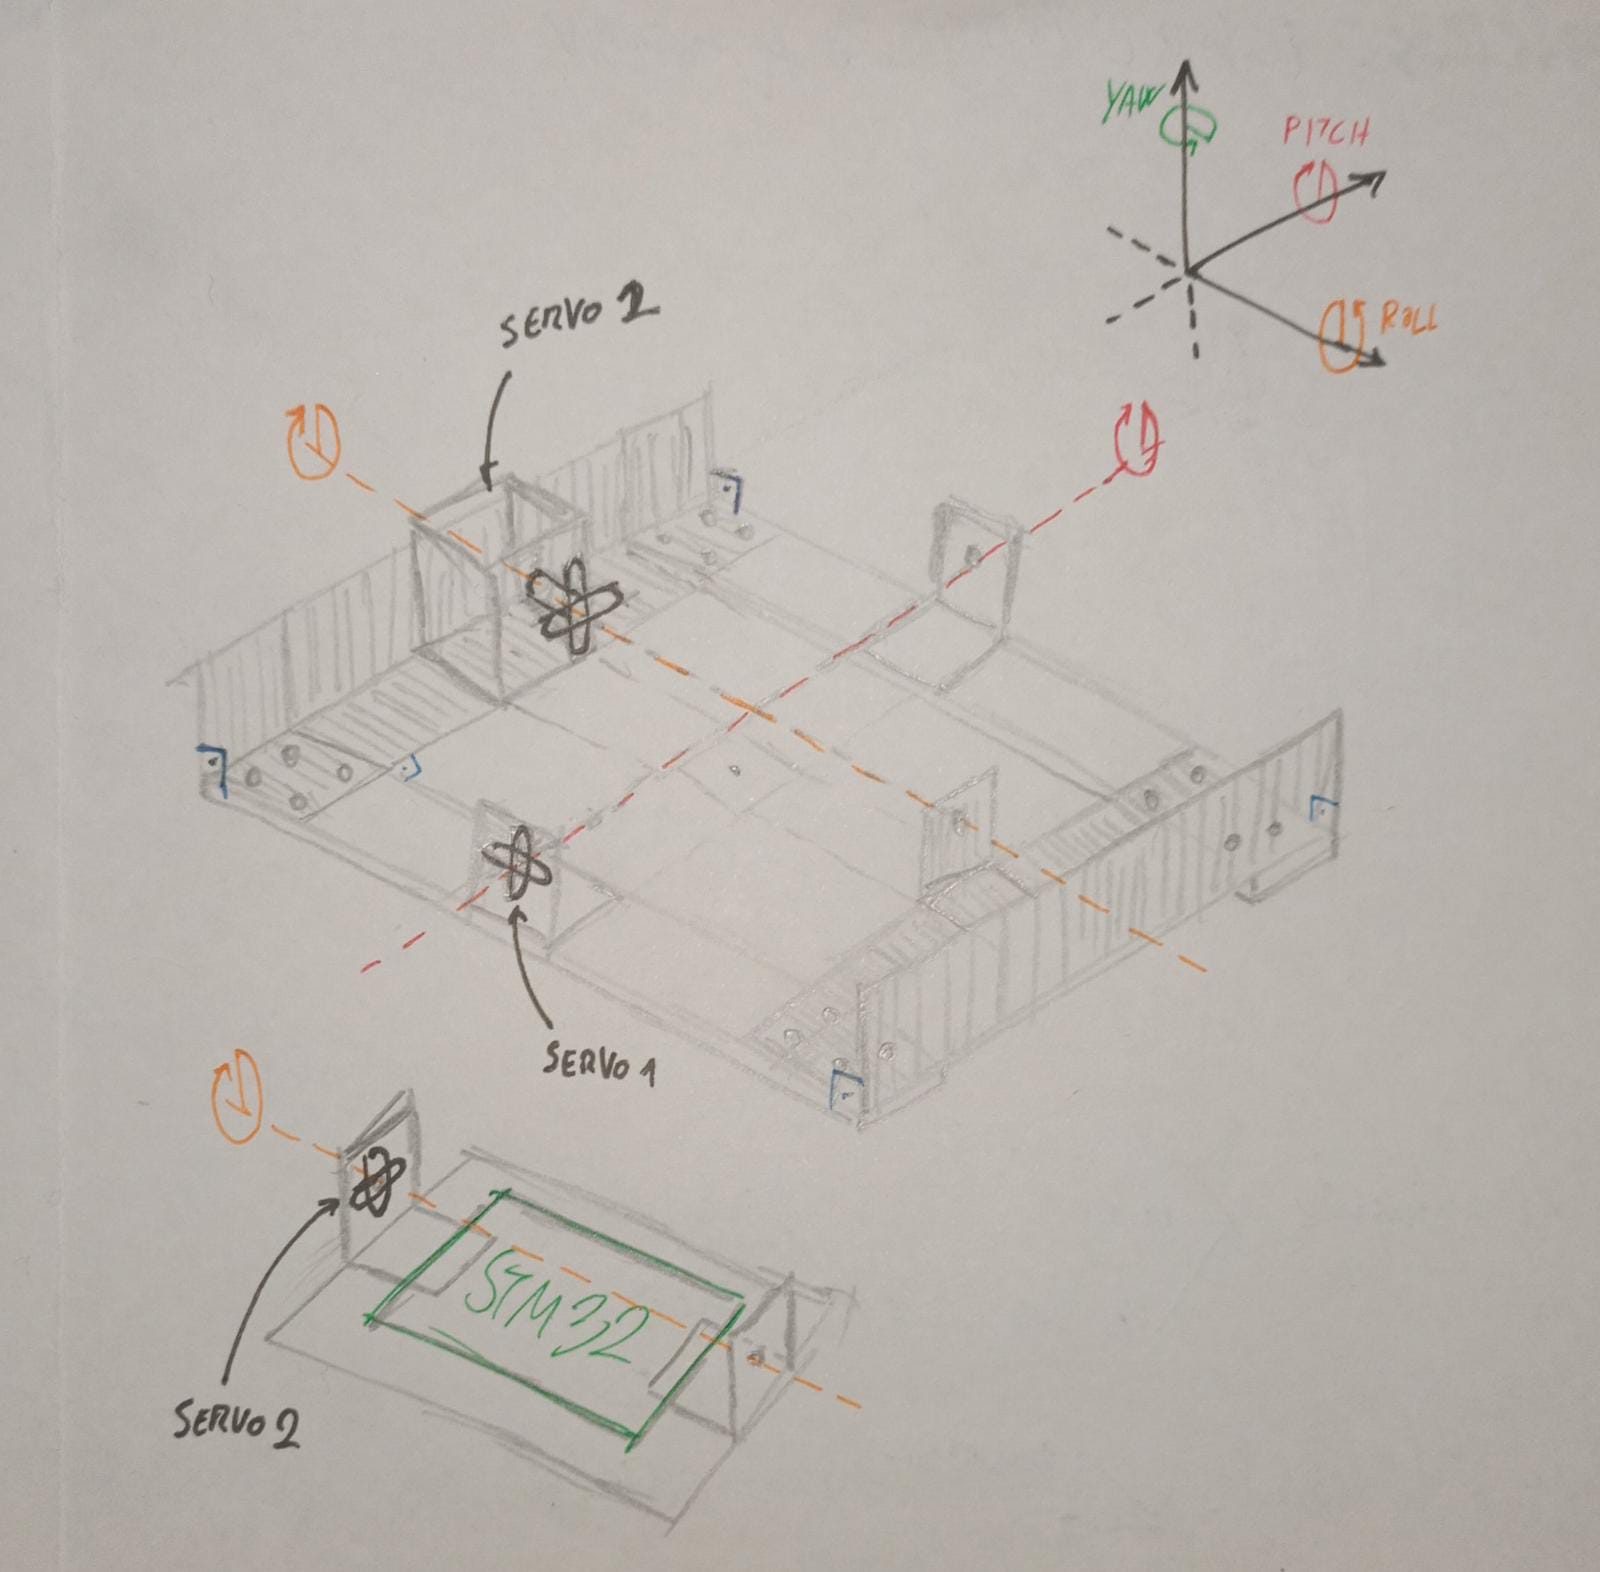 YAW
PITCH
ROLL
SERVO 2
SERVO 1
STM32
SERVO 2